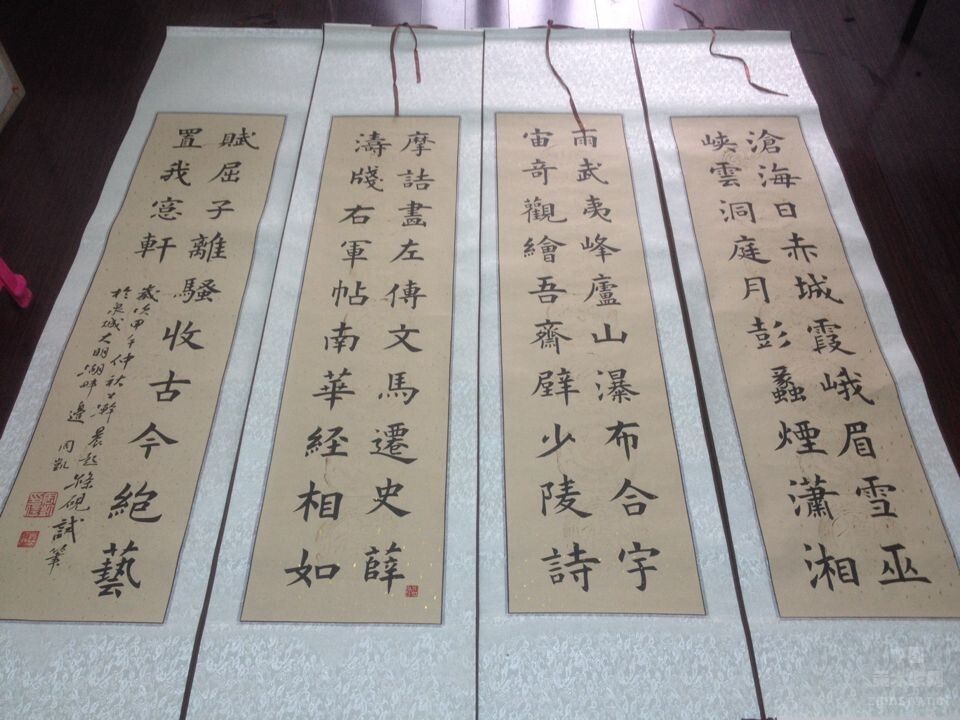 滄海日赤城霞峨眉雪巫
峽雲洞庭月彭蠡煙瀟湘
雨武夷峰廬山瀑布合宇
宙奇觀繪吾齋壁少陵詩
摩詰畫左傳文馬遷史薛
濤牋右軍帖南華経相如
賦屈子離騷收古今絶藝
置我窓軒
歲次甲午仲秋上澣晨起滌硯試筆
於泉城大明湖畔邊 周凱